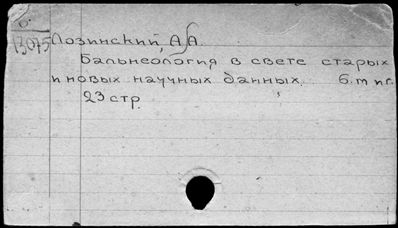 б.
13075 Лозинский, А.А.
Бальнеология в свете старых
и новых научных данных. б. м и г.
23 стр.